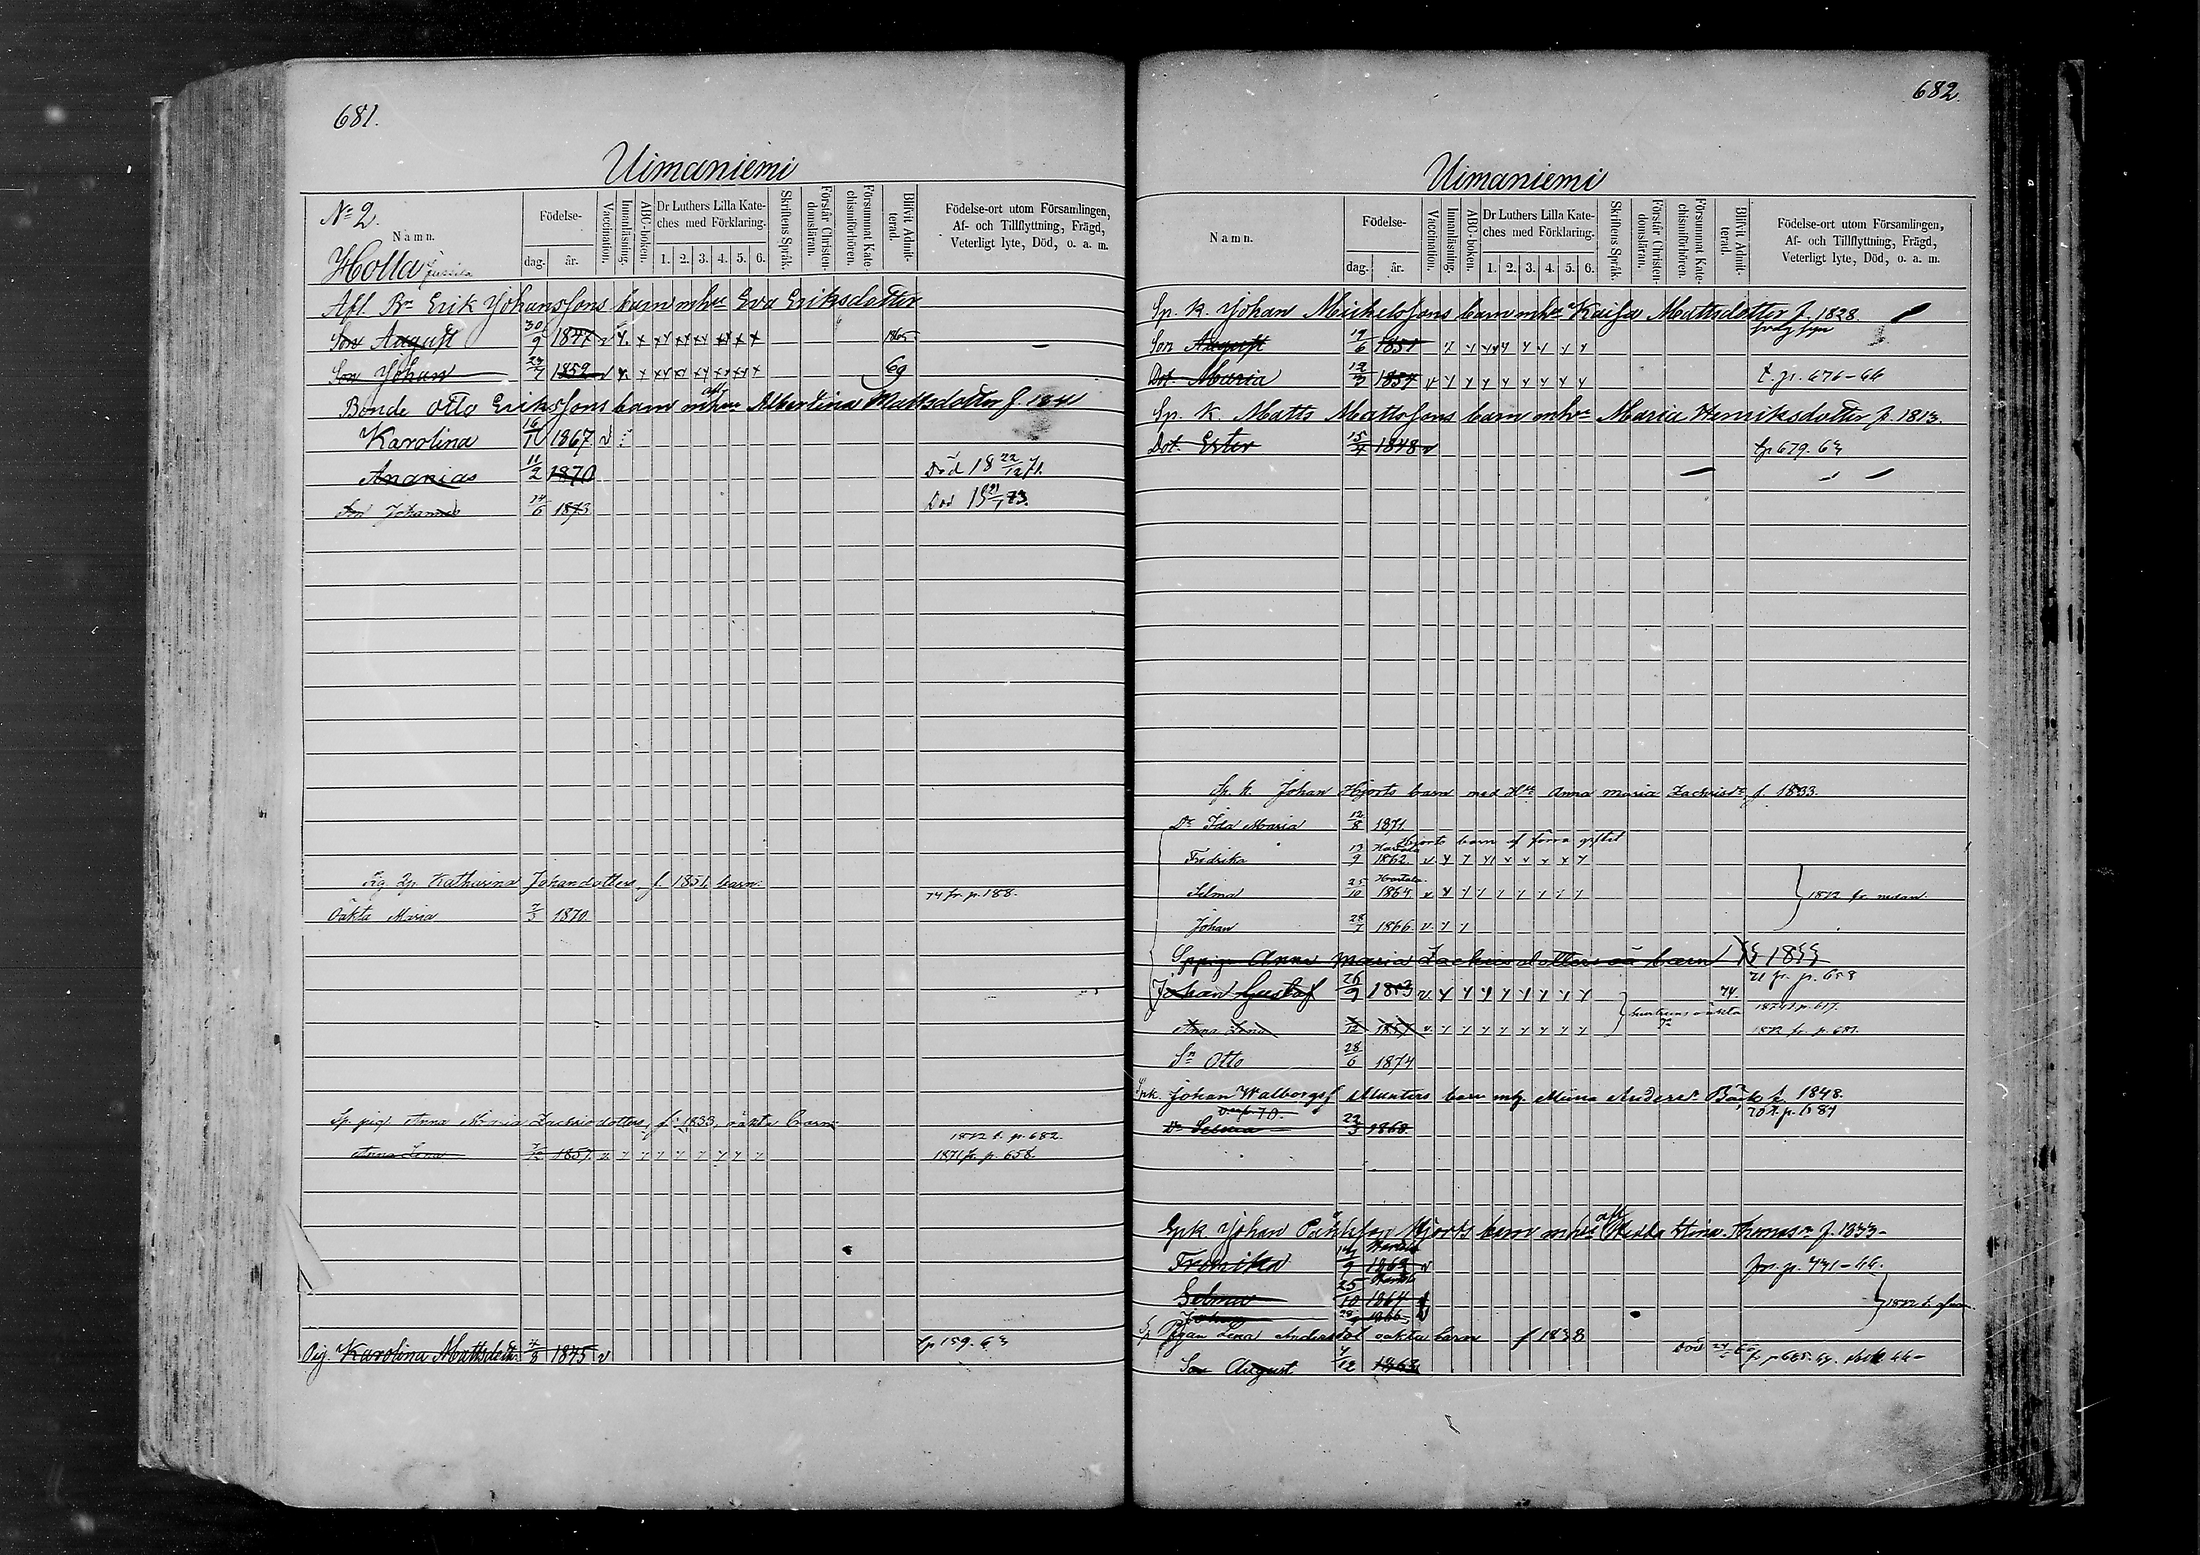 681.
Uimaniemi
No 2.
Namn.
Födelse-
dag.
år.
Vaccination.
Innanläsning.
ABC-boken.
Dr Luthers Lilla Kate-
ches med Förklaring.
1. 2. 3. 4. 5. 6.
Skriftens Språk.
Förstår Christen-
domsläran.
Försummat Kate-
chismiförhören.
Blivit Admit-
terad.
Födelse-ort utom Församlingen,
Af- och Tillflyttning, Frägd,
Veterligt lyte, Död, o. a. m.
Holla Jussila
Afl. Bn Erik Johanssons barn mhu Eva Eriksdotter
Son August 30/9 1847 v
Son Johan 1852 v 69
Bonde Otto Erikssons barn mhu Albertina Mattsdotter f. 1841
Karolina 16/11 1867 v
Ananias 11/2 1870 Död 18 22/12 71.
Son Johannes 24/6 1873 Död 73.
Pig. Katharina Johansdotters, f. 1851, barn.
74 fr. p. 188.
Oäkta Maria 1870
Sp. pig. Anna Maria Zachrisdotters, f. 1833, oäkta barn
1872 t. p. 682.
Anna Lena 1857 v 1871 fr. p. 658.
Pig. Karolina Mattsdotr 1845 v tp 159. 63
682.
Uimaniemi
Namn.
Födelse-
dag.
år.
Vaccination.
Innanläsning.
ABC-boken.
Dr Luthers Lilla Kate-
ches med Förklaring.
1. 2. 3. 4. 5. 6.
Skriftens Språk.
Förstår Christen-
domsläran.
Försummat Kate-
chismiförhören.
Blivit Admit-
terad.
Födelse-ort utom Församlingen,
Af- och Tillflyttning, Frägd,
Veterligt lyte, Död, o. a. m.
Sp. K. Johan Michelssons barn mhu Kaisa Mattsdotter f. 1828.
Son August 19/6 1851
Dot Maria 12/3 1854 v t. p. 676-66
Sp. K. Matts Mattssons barn mhu Maria Henriksdotter f. 1813.
Dot. Ester 15/4 1848 v tp 679. 63
Sp. k. Johan Hjorts barn med Hu Anna Maria Zachrisdr f. 1833.
Dr Ida Maria 12/8 1871.
Hjorts barn af förra giftet
Fredrika 13/9 1862. v
Selma 25/10 1864. v 1872 fr. nedan.
Johan 28/7 1866. v
Sppigan Anna Maria Zachrisdotters oä barn f 1833
71 fr. p. 658
Johan Gustaf 26/9 1853 v 74.
hustruns oäkta
1874 t. p. 617.
Anna Lena 1857 v 1872 fr. p. 681.
Sn Otto 28/6 1874
Spk. Johan Walborgsf Munters barn mhu Mina Andersdr Bäck f. 1848.
70 t. p. 684
Dr Selma 1868.
Spk Johan Hjorts barn mhu Hedda Stina Thomasdr f. 1833-
Fredrika 1862 v fr. p. 441-66.
Selma 25/10 1864 v
Johan 1866 v
1872 t. ofvan
Sp Pigan Lena Andersdot oäkta barn f 1838
Son August 4/12 1863 Död fr p 685. 64. död 66-